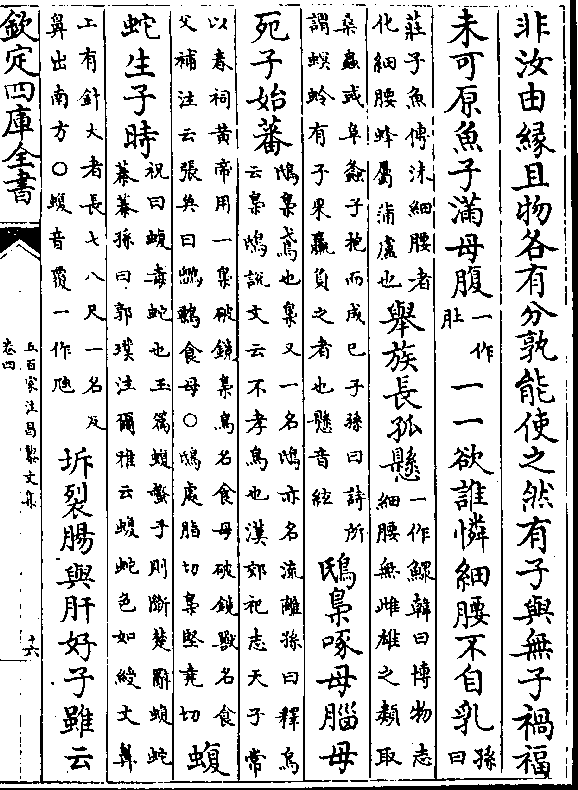 非汝由縁且物各有分孰能使之然有子與無子禍福
未可原魚子滿母腹一作肚一一欲誰憐細腰不自乳孫曰
莊子魚傅沫細腰者
化細腰蜂屬蒲盧也
舉族長孤懸
一作鰥韓曰博物志
細腰無雌雄之類取
桑蟲或阜螽子抱而成已子孫曰詩所
謂螟蛉有子果蠃負之者也懸音絃
鴟梟啄母腦母
死子始蕃
鴟梟鳶也梟又一名鴟亦名流離孫曰釋鳥
云梟鴟説文云不孝鳥也漢郊祀志天子常
以春祠黄帝用一梟破鏡梟鳥名食母破鏡獸名食
父補注云張奐曰鵂鶹食母○鴟處脂切梟堅堯切
蝮
蛇生子時
祝曰蝮毒蛇也玉篇蝮螫子則斷楚辭蝮蛇
蓁蓁孫曰郭璞注爾雅云蝮蛇色如綬文鼻
上有針大者長七八尺一名反
鼻出南方○蝮音覆一作虺
坼裂腸與肝好子雖云
欽定四庫全書
五百家注昌黎文集
卷四
十六